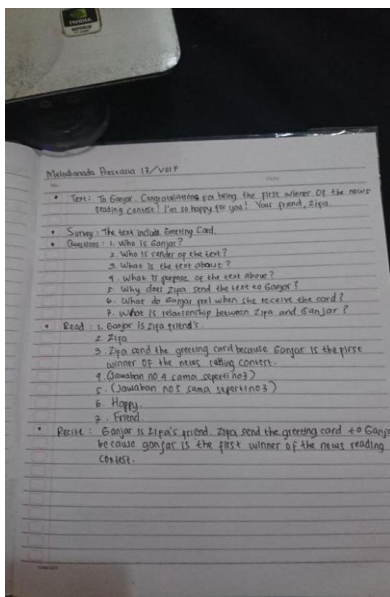 NVIDIA
Melodianada Prescasia 17/VIII F
No:
Date:
• Text: To Ganjar. Congratulations for being the first winner of the news
reading contest! I'm so happy for you! Your friend, Zipa.
• Survey: The text include Greeting Card.
• Questions: 1. Who is Ganjar?
2. Who is sender of the text?
3. What is the text about?
4. What is purpose of the text above?
5. Why does Zipa send the text to Ganjar?
6. What do Ganjar feel when she receive the card?
7. What is relationship between Zipa and Ganjar?
• Read: 1. Ganjar is Zipa friend's.
2. Zipa
3. Zipa send the greeting card because Ganjar is the first
winner of the news contest.
4. (Jawaban no 4 sama seperti no 3)
5. (Jawaban no 5 sama seperti no 3)
6. Happy.
7. Friend.
• Recite: Ganjar is Zipa's friend. Zipa send the greeting card to Ganjar
because ganjar is the first winner of the news reading
contest.